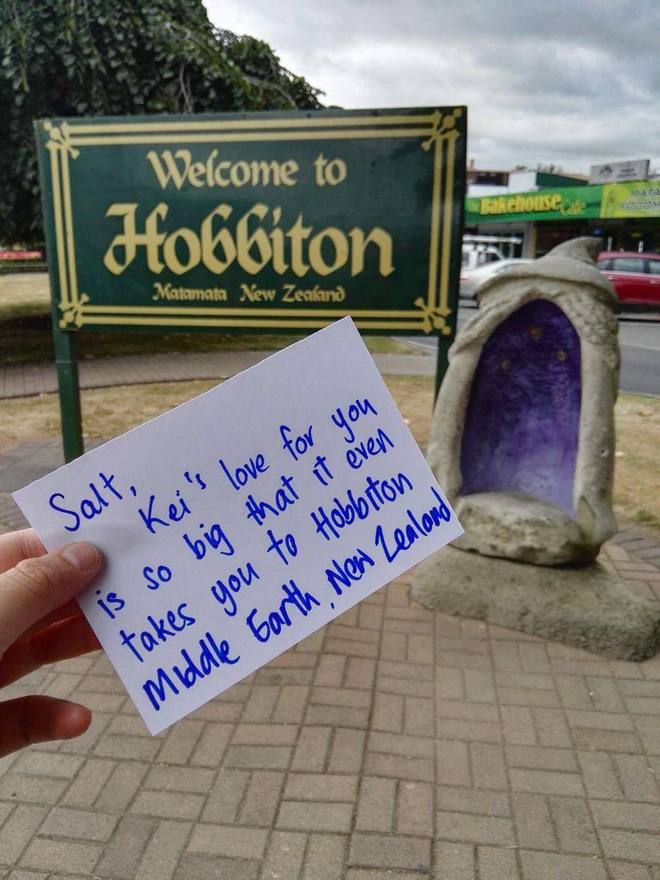 Welcome to
Hobbiton
Matamata New Zealand
The Bakehouse Cafe
Salt,
Kei's love for you
is so big that it even
takes you to Hobbiton
Middle Earth, New Zealand